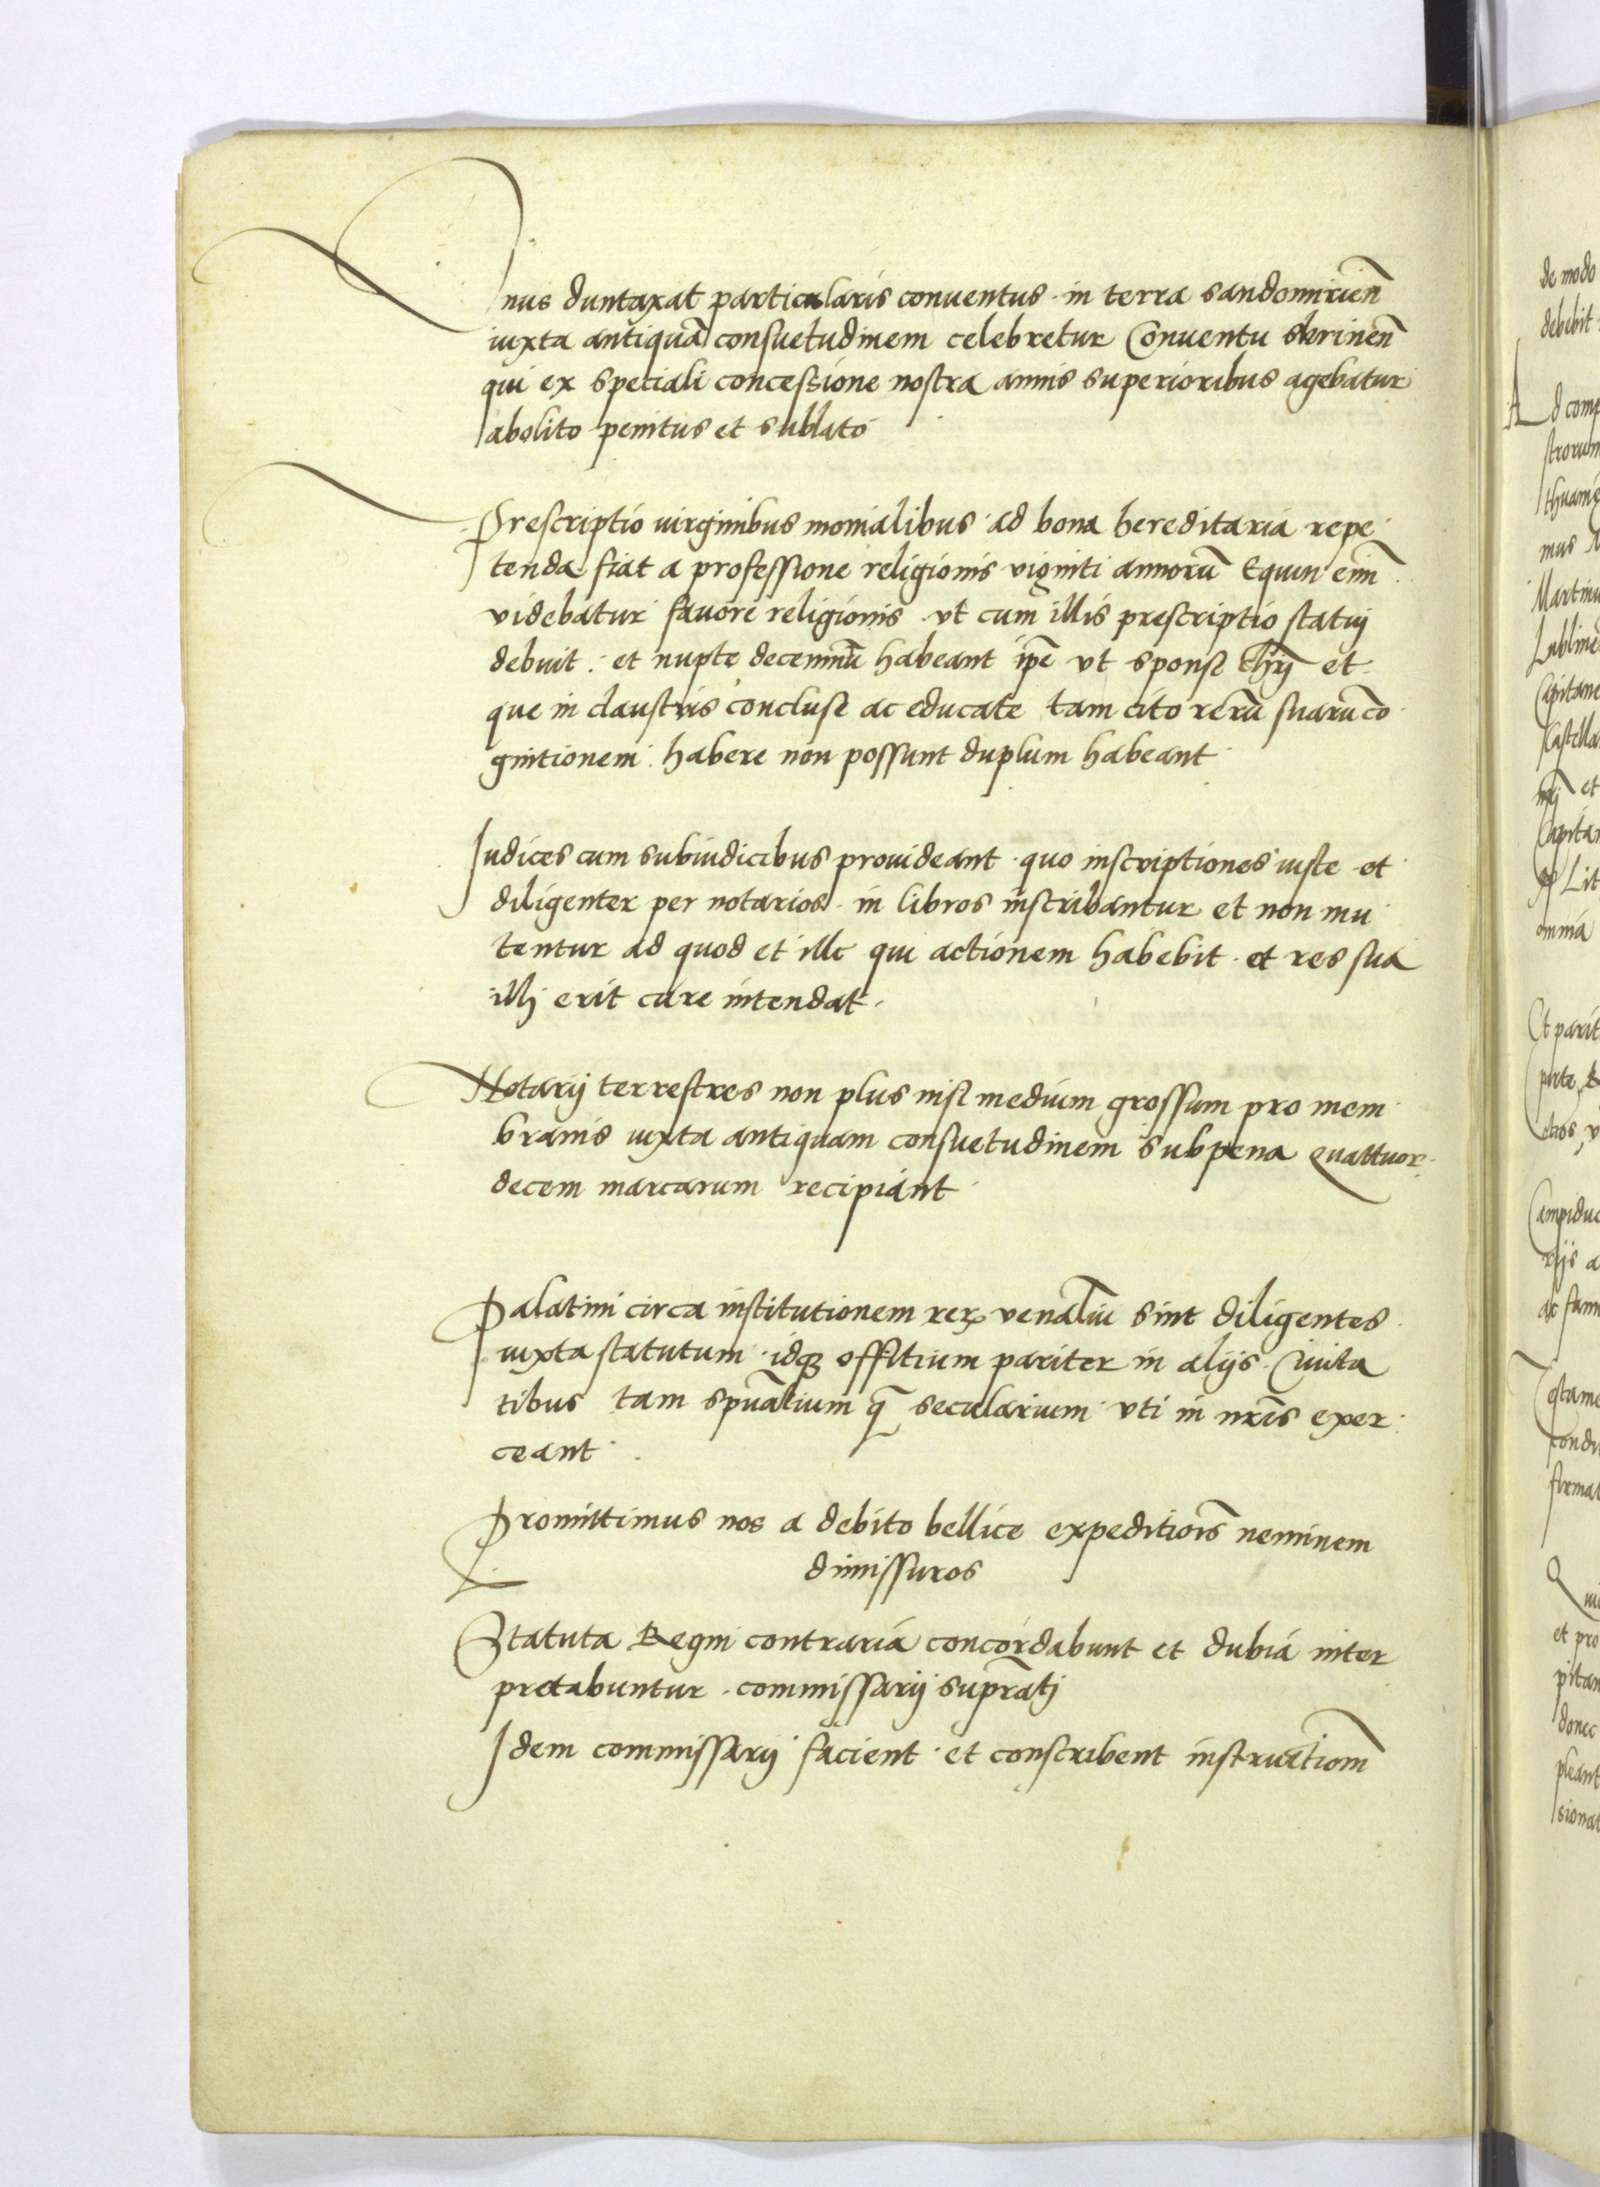 Vnus duntaxat particularis conuentus in terra sandomirien̄
iuxta antiquā consuetudinem celebretur Conuentu
qui ex speciali concessione nostra annis superioribus agebatur
abolito penitus et sublato
Prescriptio virginibus monialibus ad bona hereditaria repe
tenda fiat a professione religionis viginti annorū Equm eīm
videbatur fauore religionis vt cum illis prescriptio statuj
debuit . et nupte decenniū habeant ip̄e vt sponse chrī et
que in claustris concluse ac educate tam cito rerū suarū co
gnitionem habere non possunt duplum habeant
Iudices cum subiudicibus prouideant quo inscriptiones iuste et
diligenter per notarios in libros inscribantur et non mu
tentur ad quod et ille qui actionem habebit et res sua
illi erit cure intendat .
Notarij terrestres non plus nisi medium grossum pro mem
branis iuxta antiquam consuetudinem sub pena quattuor
decem marcarum recipiant
Palatini circa institutionem rerꝝ venaliū sint diligentes
iuxta statutum idqꝫ offitium pariter in alijs Ciuita
tibus tam spūalium q̄ secularium vti in nrīs exer
ceant
Promittimus nos a debito bellice expeditiōis neminem
dimissuros
Statuta Regni contraria concordabunt et dubia inter
pretabuntur . commissarij suprāti
Idem commissarij facient et conscribent instructiōm
de modo
debebit
Ad comp
strorum
thuanie
mus
Martinu
Lubline
Capitane
Castella
et
Capitan
Lit
omnia
Et parit
parte
Campiduc
rijs a
ac fam
Testame
condu
firmat
Qui
et pro
pitan
donec
pleant
sionat